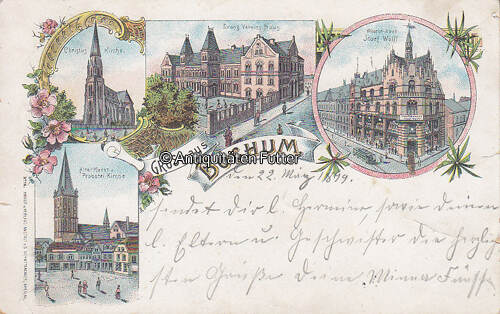 Christus Kirche.
Evang. Vereins Haus
Josef Wolff
Alter Markt u.
Probstei Kirche
Gruss aus
BOCHUM
© Antiquitäten Futter
den 22. May 1899.
sendet dir l. Hermine sowie deinen
l. Eltern u. Geschw. die herzlich
sten Grüße Deine Minna